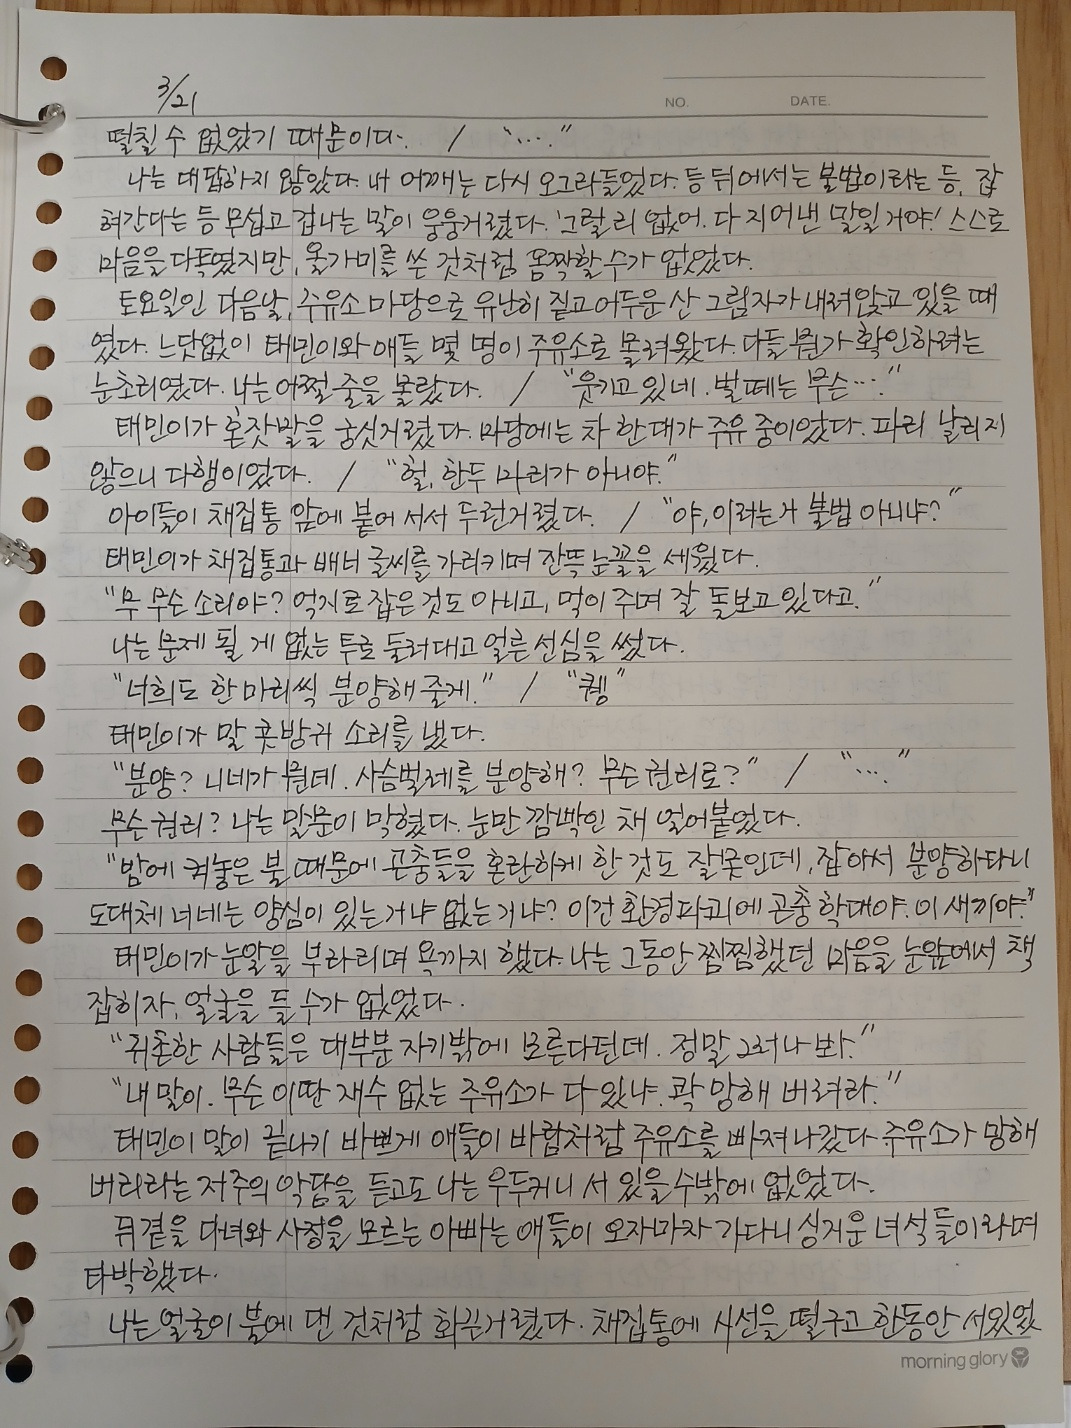 3/21
NO. DATE.
떨칠 수 없었기 때문이다. / "…."
나는 대답하지 않았다. 내 어깨는 다시 오그라들었다. 등 뒤에서는 불법이라는 등, 잡
혀간다는 등 무섭고 겁나는 말이 웅웅거렸다. '그럴 리 없어. 다 지어낸 말일 거야!' 스스로
마음을 다독였지만, 올가미를 쓴 것처럼 옴짝할 수가 없었다.
토요일인 다음날, 주유소 마당으로 유난히 짙고 어두운 산 그림자가 내려앉고 있을 때
였다. 느닷없이 태민이와 애들 몇 명이 주유소로 몰려왔다. 다들 뭔가 확인하려는
눈초리였다. 나는 어쩔 줄을 몰랐다. / "웃기고 있네. 벌떼는 무슨…"
태민이가 혼잣말을 궁싯거렸다. 마당에는 차 한대가 주유 중이었다. 파리 날리지
않으니 다행이었다. / "헐, 한두 마리가 아니야."
아이들이 채집통 앞에 붙어 서서 두런거렸다. / "야, 이러는거 불법 아니냐?"
태민이가 채집통과 배너 글씨를 가리키며 잔뜩 눈꼴을 세웠다.
"무 무슨 소리야? 억지로 잡은 것도 아니고, 먹이 주며 잘 돌보고 있다고."
나는 문제 될 게 없는 투로 둘러대고 얼른 선심을 썼다.
"너희도 한 마리씩 분양해 줄게." / "퀭"
태민이가 말 콧방귀 소리를 냈다.
"분양? 니네가 뭔데. 사슴벌레를 분양해? 무슨 권리로?" / "…."
무슨 권리? 나는 말문이 막혔다. 눈만 깜빡인 채 얼어붙었다.
"밤에 켜놓은 불 때문에 곤충들을 혼란하게 한 것도 잘못인데, 잡아서 분양하다니
도대체 너네는 양심이 있는거냐 없는 거냐? 이건 환경파괴에 곤충 학대야. 이 새끼야."
태민이가 눈알을 부라리며 욕까지 했다. 나는 그동안 찜찜했던 마음을 눈앞에서 책
잡히자, 얼굴을 들 수가 없었다.
"귀촌한 사람들은 대부분 자기밖에 모른다던데. 정말 그러나 봐."
"내 말이. 무슨 이딴 재수 없는 주유소가 다 있냐. 콱 망해 버려라."
태민이 말이 끝나기 바쁘게 애들이 바람처럼 주유소를 빠져나갔다. 주유소가 망해
버리라는 저주의 악담을 듣고도 나는 우두커니 서 있을 수밖에 없었다.
뒤곁을 다녀와 사정을 모르는 아빠는 애들이 오자마자 가다니 싱거운 녀석들이라며
타박했다.
나는 얼굴이 불에 댄 것처럼 화끈거렸다. 채집통에 시선을 떨구고 한동안 서있었
morning glory